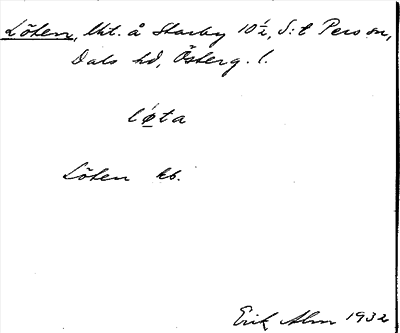 Löten, lht. å Starby 10½, S:t Pers sn,
Dals hd, Österg. l.
lø̄́ta
Löten kb.
Erik Alm 1932